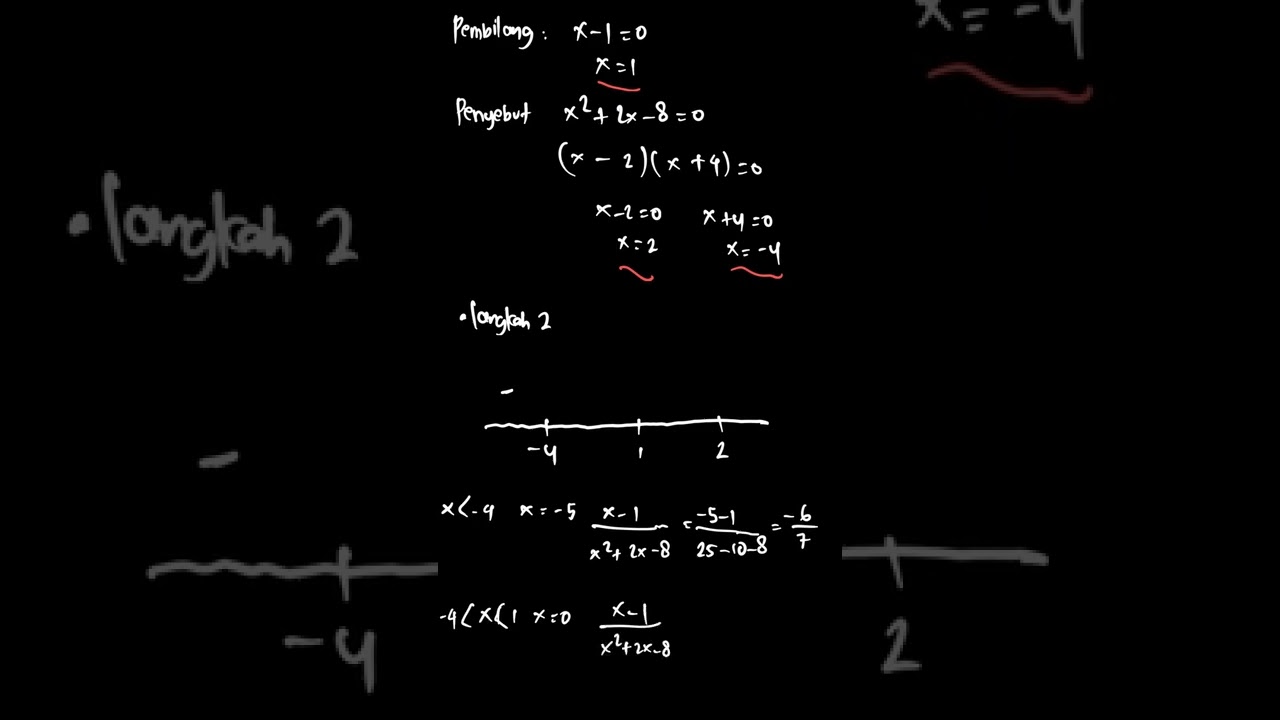 Pembilang : x-1=0
x=1
Penyebut x²+2x-8=0
(x-2)(x+4)=0
x-2=0 x+4=0
x=2 x=-4
• langkah 2
-
-4 1 2
x<-4 x=-5 x-1/x²+2x-8 = -5-1/25-10-8 = -6/7
-4<x<1 x=0 x-1/x²+2x-8
x=-4
• langkah 2
-
-4 2